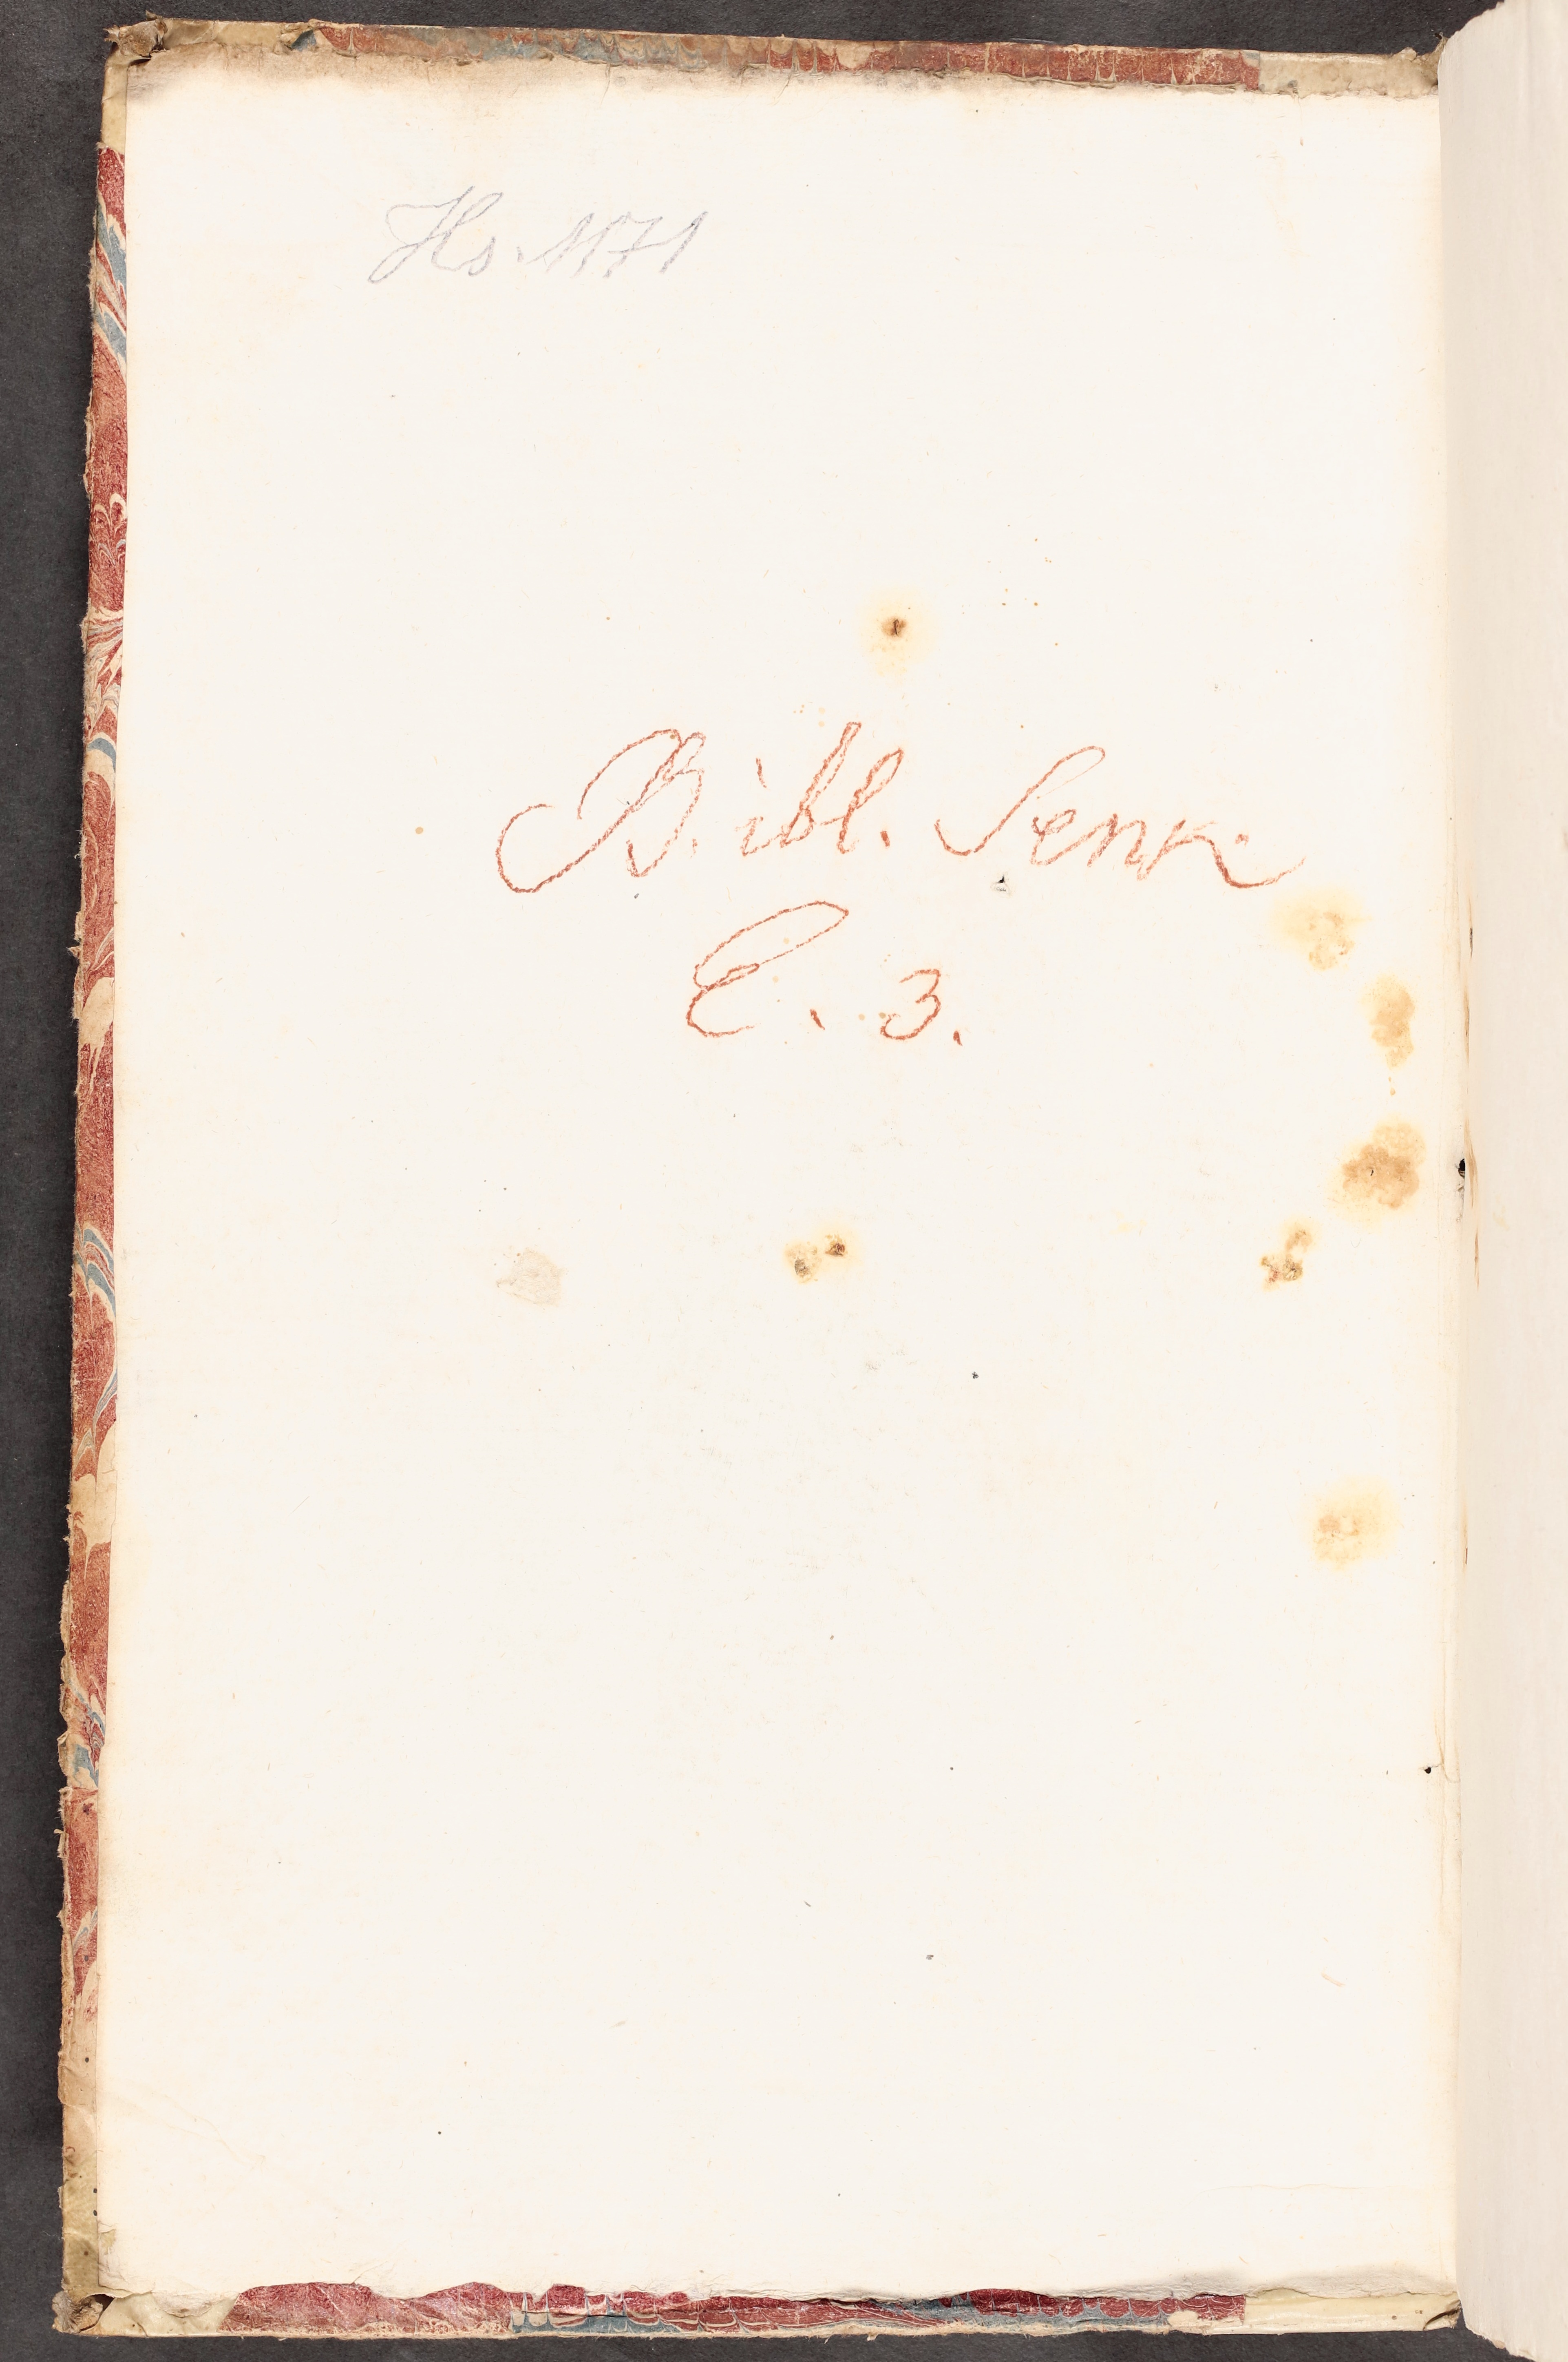 Hs. 1171
Bibl. Senk
C. 3.